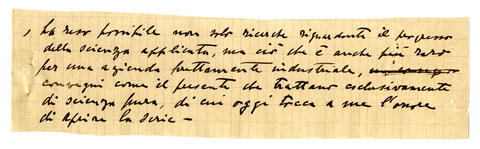 , ha reso possibile non solo ricerche riguardante il progresso
della scienza applicata, ma ciò che è anche più raro
per una azienda prettamente industriale,
convegni come il presente che trattano esclusivamente
di scienza pura, di cui oggi tocca a me l'onore
di aprire la serie –